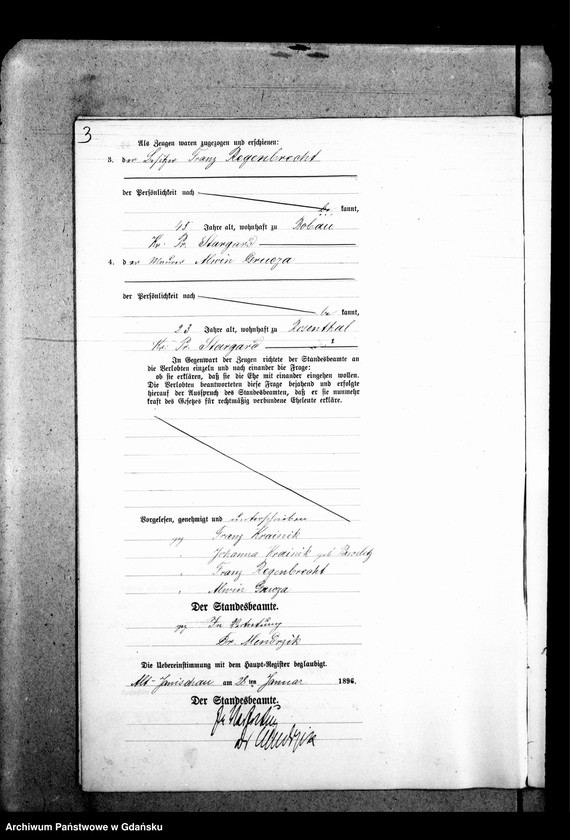 3
Als Zeugen waren zugezogen und erschienen:
3. der Besitzer Franz Regenbrecht
der Persönlichkeit nach
be kannt,
45 Jahre alt, wohnhaft zu Bobau
Kr. Pr. Stargard
4. der Maurer Alwin Grucza
der Persönlichkeit nach
be kannt,
23 Jahre alt, wohnhaft zu Rosenthal
Kr. Pr. Stargard
In Gegenwart der Zeugen richtete der Standesbeamte an
die Verlobten einzeln und nach einander die Frage:
ob sie erklären, daß sie die Ehe mit einander eingehen wollen.
Die Verlobten beantworteten diese Frage bejahend und erfolgte
hierauf der Ausspruch des Standesbeamten, daß er sie nunmehr
kraft des Gesetzes für rechtmäßig verbundene Eheleute erkläre.
Vorgelesen, genehmigt und unterschrieben
gez Franz Krainik
" Johanna Krainik geb
" Franz Regenbrecht
" Alwin Grucza
Der Standesbeamte.
gez In Vertretung
Dr. Mendrzik
Die Uebereinstimmung mit dem Haupt-Register beglaubigt.
Alt-Janischau am 26 ten Januar 1896.
Der Standesbeamte.
In Vertretung
Dr Mendrzik
Archiwum Państwowe w Gdańsku